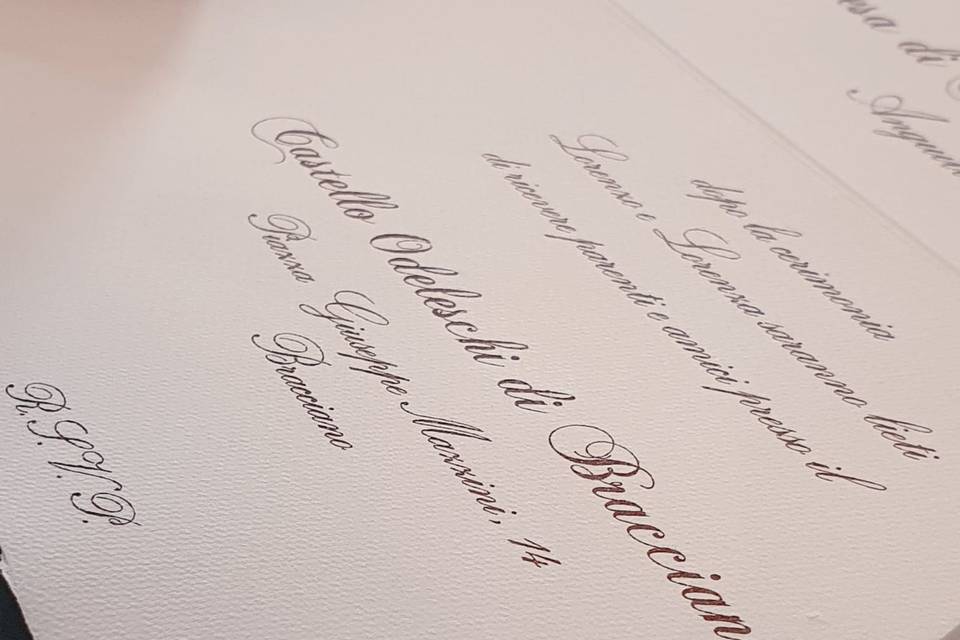 esa di
dopo la cerimonia
Lorenzo e Lorenza saranno lieti
di ricevere parenti e amici presso il
Castello Odeleschi di Braccian
Piazza Giuseppe Mazzini, 14
Bracciano
R.S.V.P.